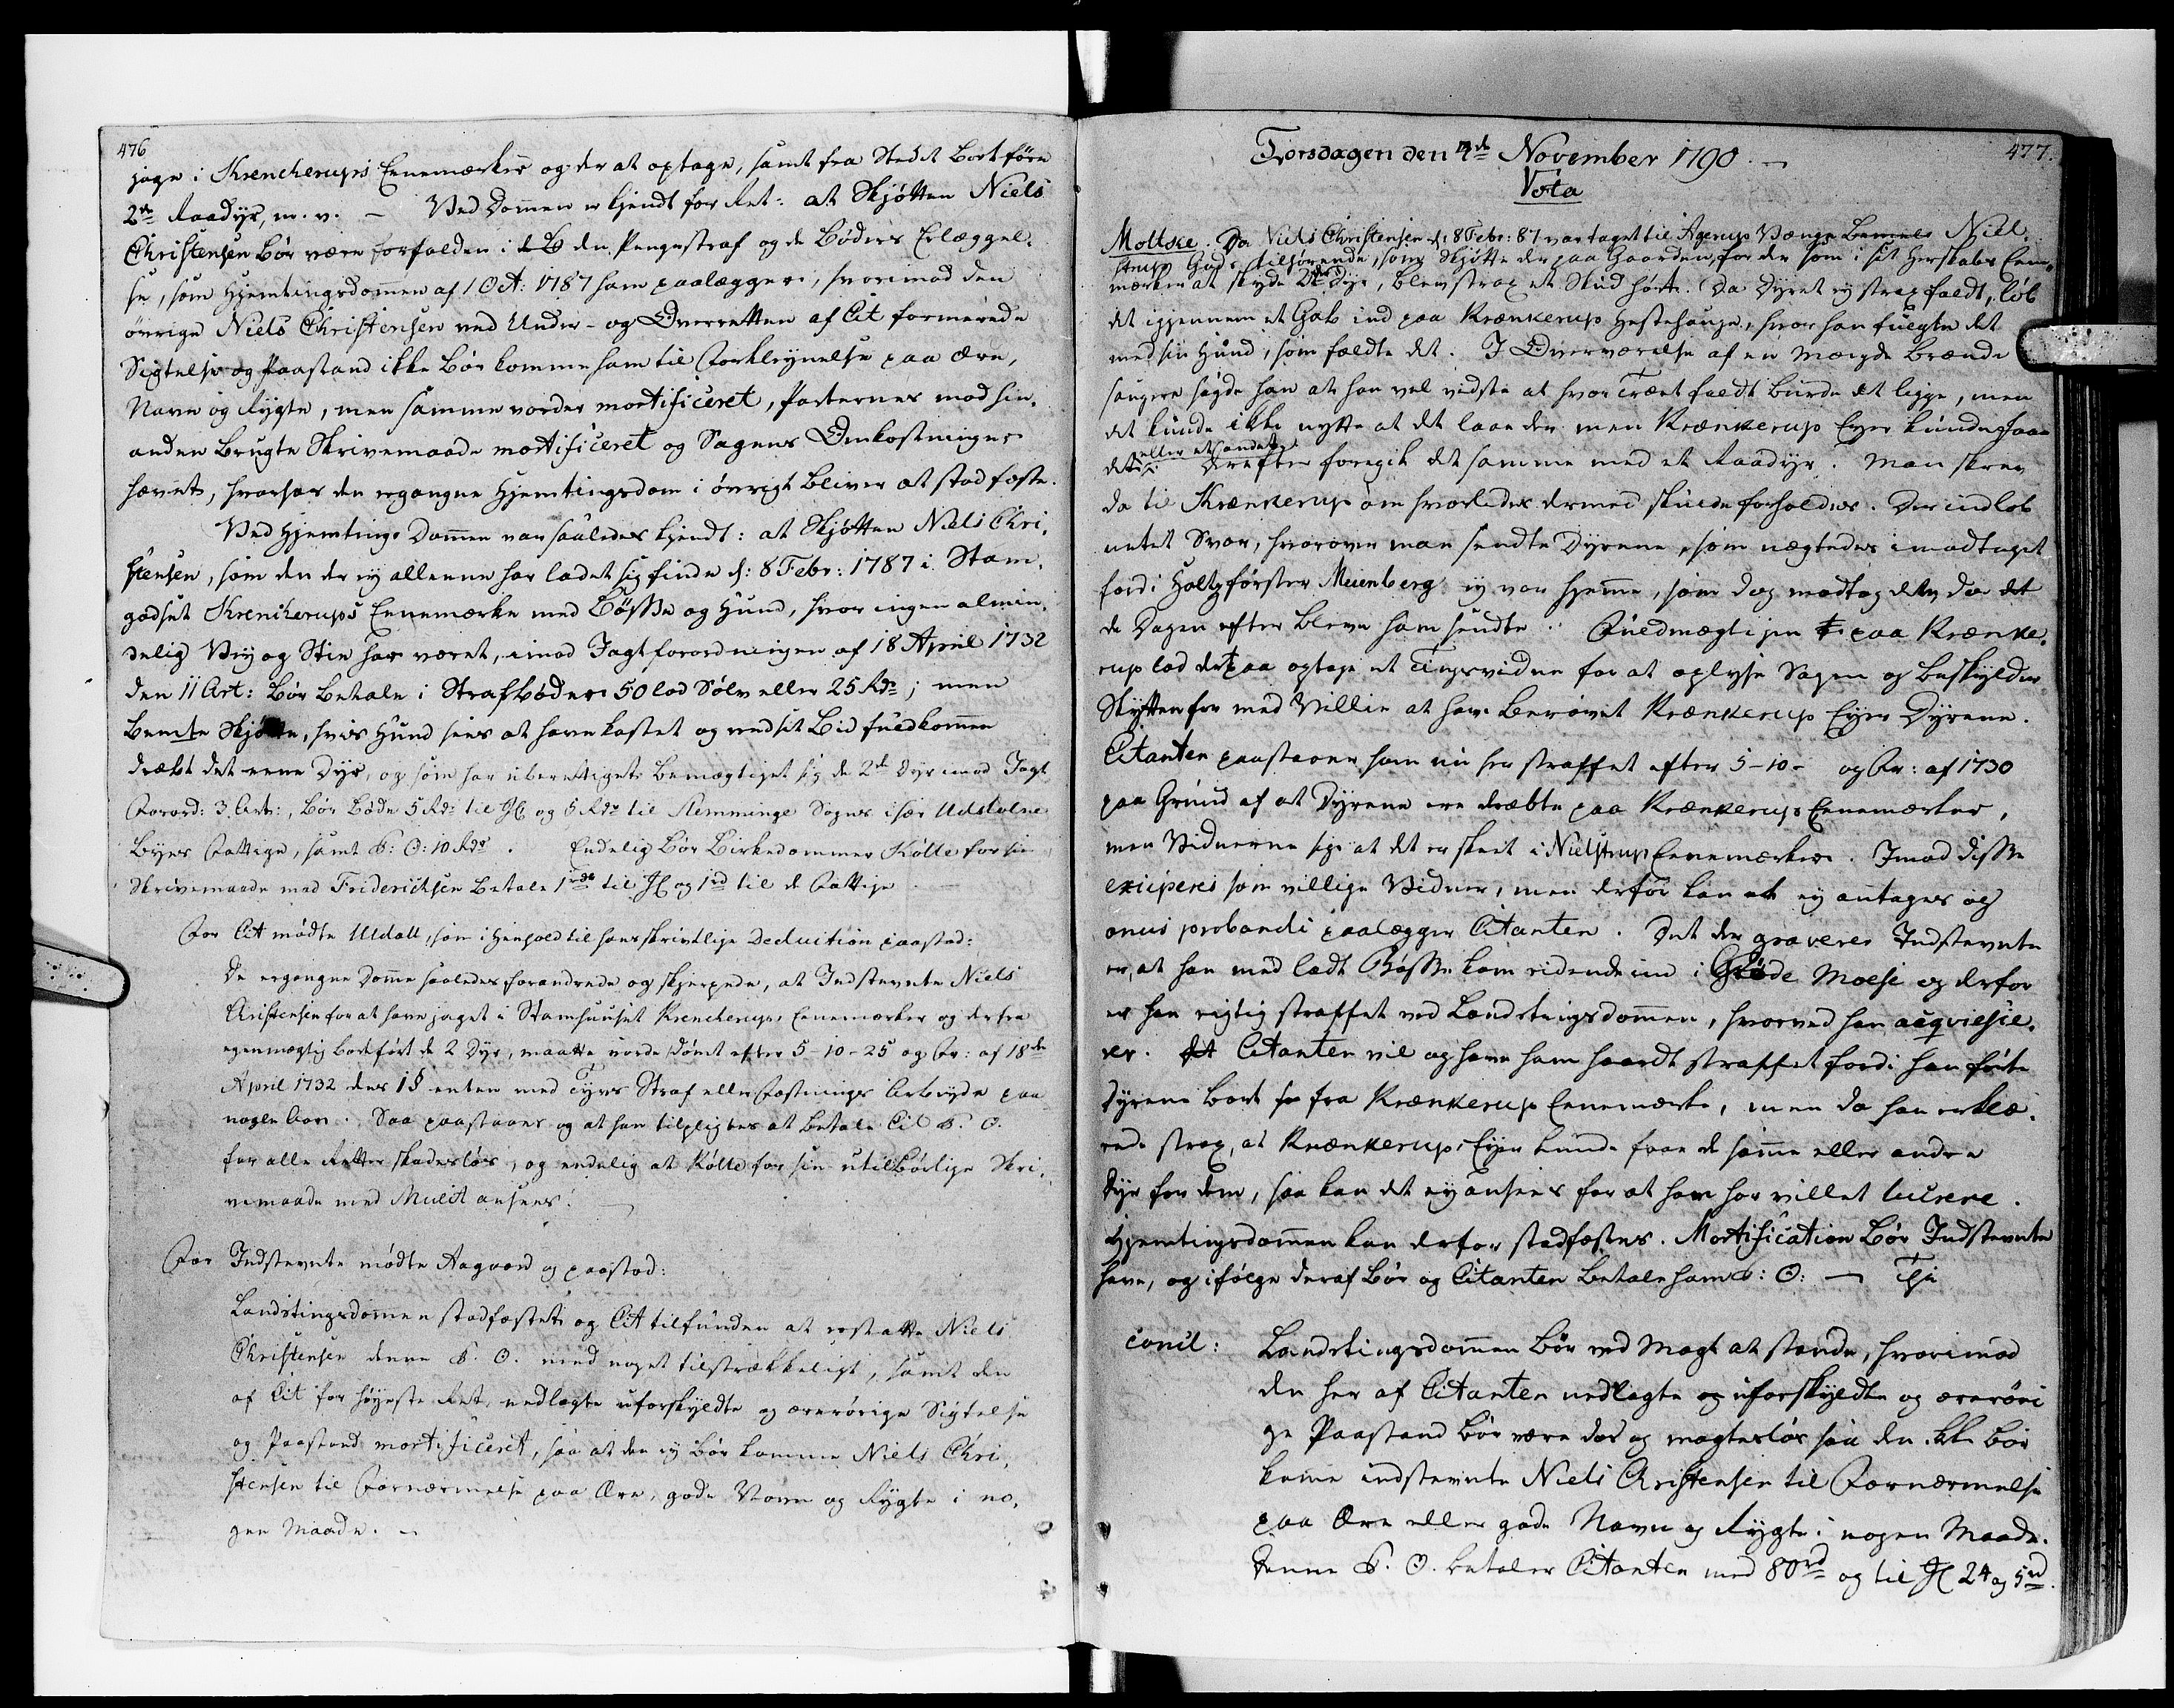 476
jage i Krencherups Eenemærker og der at optage, samt fra Stedet bortføre
2de Raadyr, m. v. – Ved Dommen er kjendt for Ret: at Skjøtten Niels
Christensen bør være forfalden i den Pengestraf og de Bøders Erlæggel,
se, som Hjemtingsdommen af 1 Oct: 1787 ham paalægger, hvorimod den
øvrige Niels Christensen ved Under- og Overretten af Cit formerede
Sigtelse og Paastand ikke bør komme ham til Forkleynelse paa Ære,
Navn og Rygte, men samme vorder mortificeret, Parternes mod hin,
anden brugte Skrivemaade mortificeret og Sagens Omkostninger
hævet, hvorhos den ergangne Hjemtingsdom i øvrigt bliver at stadfæste.
Ved Hjemtings Dommen var saaledes kjendt: at Skjøtten Niels Chri,
stensen, som den der ey alleene har ladet sig finde d: 8 Febr: 1787 i Stam,
godset Krencherups Eenemærke med Bøsse og Hund, hvor ingen almin,
delig Vey og Stie har været, imod Jagtforordningen af 18 April 1732
den 11 Art: bør betale i Strafbøder 50 lod Sølv eller 25 Rdr; men
bemte Skjøtte, hvis Hund siges at have kastet og ved sit Bid fuldkommen
dræbt det eene Dyr, og som har uberettiget bemægtiget sig de 2de Dyr imod Jagt
Forord: 3 Art:, bør bøde 5 Rdr til JC og 5 Rdr til Remminge Sogns især Udstolne
Byes Fattige, samt P. O: 10 Rdr. Endelig bør Birkedommer Kølle for sin
Skrivemaade mod Friderichsen betale 1 rdr til JC og 1 rd til de Fattige
For Cit mødte Uldall, som i Henhold til hans skrivtlige Deduction paastod:
De ergangne Domme saaledes forandrede og skjerpede, at Indstevnte Niels
Christensen for at have jaget i Stamhuuset Krencherups Eenemærker og derfra
egenmægtig bortført de 2 Dyr, maatte vorde dømt efter 5-10-25 og Fr: af 18de
April 1732 des 1 § enten med Tyvs Straf eller Fæstnings Arbeyde paa
nogle Aar. Saa paastaaes og at han tilpligtes at betale Cit P. O.
for alle Retter skadesløs, og endelig at Kølle for sin utilbørlige Skri,
vemaade med Mulct ansees.
For Indstevnte mødte Aagaard og paastod:
Landstingsdommen stadfæstet og Cit tilfunden at erstatte Niels
Christensen denne P. O. med noget tilstrækkeligt, samt den
af Cit for høyeste Ret nedlagte uforskyldte og ærerørige Sigtelse
og Paastand mortificeret, saa at den ey bør komme Niels Chri,
stensen til Fornærmelse paa Ære, gode Navn og Rygte i no,
gen Maade. –
477.
Torsdagen den 4de November 1790. –
Vota
Moltke. Da Niels Christensen d: 8 Febr: 87 var taget til Agerup Vænge Bemel Niel
strup Gods tilhørende, som Skjøtte der paa Gaarden, for der som i sit Herskabs Een,
mærker at skyde 2de Dyr, blev strax et Skud hørt. Da Dyret ey strax faldt, løb
det igjennem et Gab ind paa Krænkerup Hestehauge, hvor han fulgte det
med sin Hund, som fældte det. I Overværelse af en Mængde Brænde
saugere sagde han at han vel vidste at hvor Træet faldt burde det ligge, men
det kunde ikke nytte at det laae der men Krænkerup Eyer kunde faae
det eller et andet. Derefter foregik det samme med et Raadyr. Man skrev
da til Krænkerup om hvorledes dermed skulde forholdes. Der indløb
intet Svar, hvorover man sendte Dyrene, som nægtedes imodtaget
fordi Holtzførster Meienberg ey var hjemme, som dog modtog dem da det
de Dagen efter bleve ham sendte. Fuldmægtigen paa Krænke,
rup lod derpaa optage et Tingsvidne for at oplyse Sagen og beskylder
Skytten for med Villie at have berøvet Krænkerup Eyer Dyrene.
Citanten paastaaer ham nu her straffet efter 5-10- og Fr: af 1730
paa Grund af at Dyrene ere dræbte paa Krænkerups Eenemærker,
men Vidnerne sige at det er skeet i Nielstrup Eenemærker. Imod disse
exciperes som villige Vidner, men derfor kan ey antages og
onus probandi paalægger Citanten. Det der graverer Indstevnte
er, at han med ladt Bøsse kom ridende ind i Grøde Moese og derfor
er han rigtig straffet ved Landstingsdommen, hvorved han acqviesce,
rer. Citanten vil og have ham haardt straffet fordi han førte
Dyrene bort fra Krænkerup Eenemærke, men da han erklæ,
rede strax, at Krænkerups Eyer kunde faae de samme eller andre
Dyr for dem, saa kan det ey ansees for at han har villet lucrere.
Hjemtingsdommen kan derfor stadfæstes. Mortification bør Indstevnte
have, og ifølge deraf bør og Citanten betale ham P: O: – Thi
concl: Landstingsdommen bør ved Magt at stande, hvorimod
den her af Citanten nedlagte uforskyldte og ærerøri
ge Paastand bør være død og magtesløs saa den ikke bør
komme indstevnte Niels Christensen til Fornærmelse
paa Ære eller gode Navn og Rygte i nogen Maade.
Denne P. O. betaler Citanten med 80 rd og til JC 24 og 5 rd.